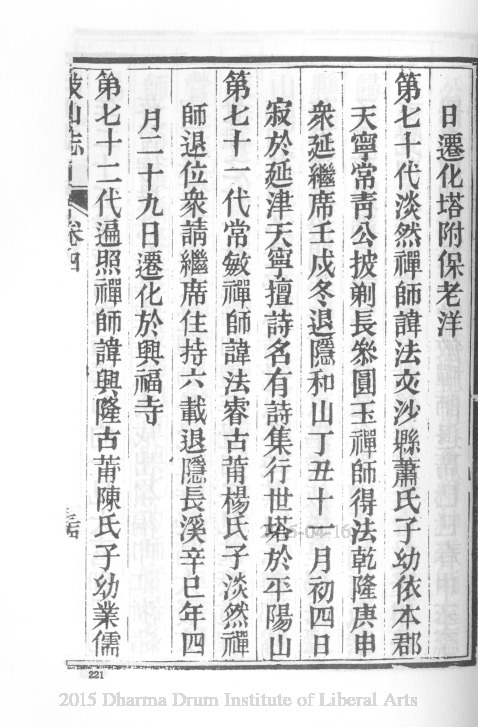 日遷化塔附保老洋
第七十代淡然禪師諱法文沙縣蕭氏子幼依本郡
天寧常青公披剃長叅圓玉禪師得法乾隆庚申
衆延繼席壬戍冬退隱和山丁丑十一月初四日
寂於延津天寧擅詩名有詩集行世塔於平陽山
第七十一代常敏禪師諱法睿古莆楊氏子淡然禪
師退位衆請繼席住持六載退隱長溪辛巳年四
月二十九日遷化於興福寺
第七十二代遍照禪師諱興隆古莆陳氏子幼業儒
鼓山志 卷四
221
2015 Dharma Drum Institute of Liberal Arts